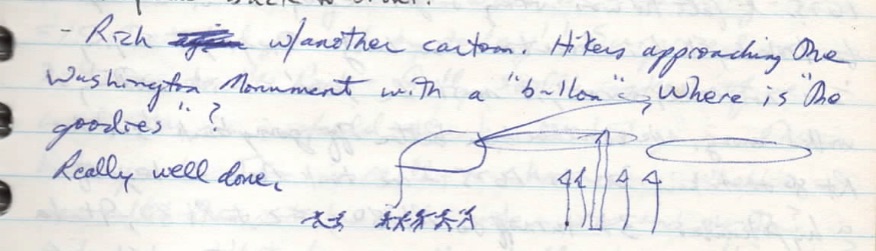 - Rich w/another cartoon. Hikers approaching the
Washington Monument with a "ballon": Where is "the
goodies"?
Really well done.